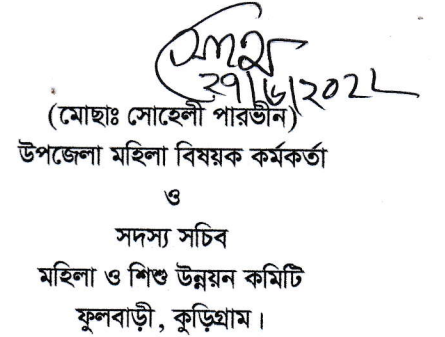 ২৭/৬/২০২২
(মোছাঃ সোহেলী পারভীন)
উপজেলা মহিলা বিষয়ক কর্মকর্তা
ও
সদস্য সচিব
মহিলা ও শিশু উন্নয়ন কমিটি
ফুলবাড়ী, কুড়িগ্রাম।